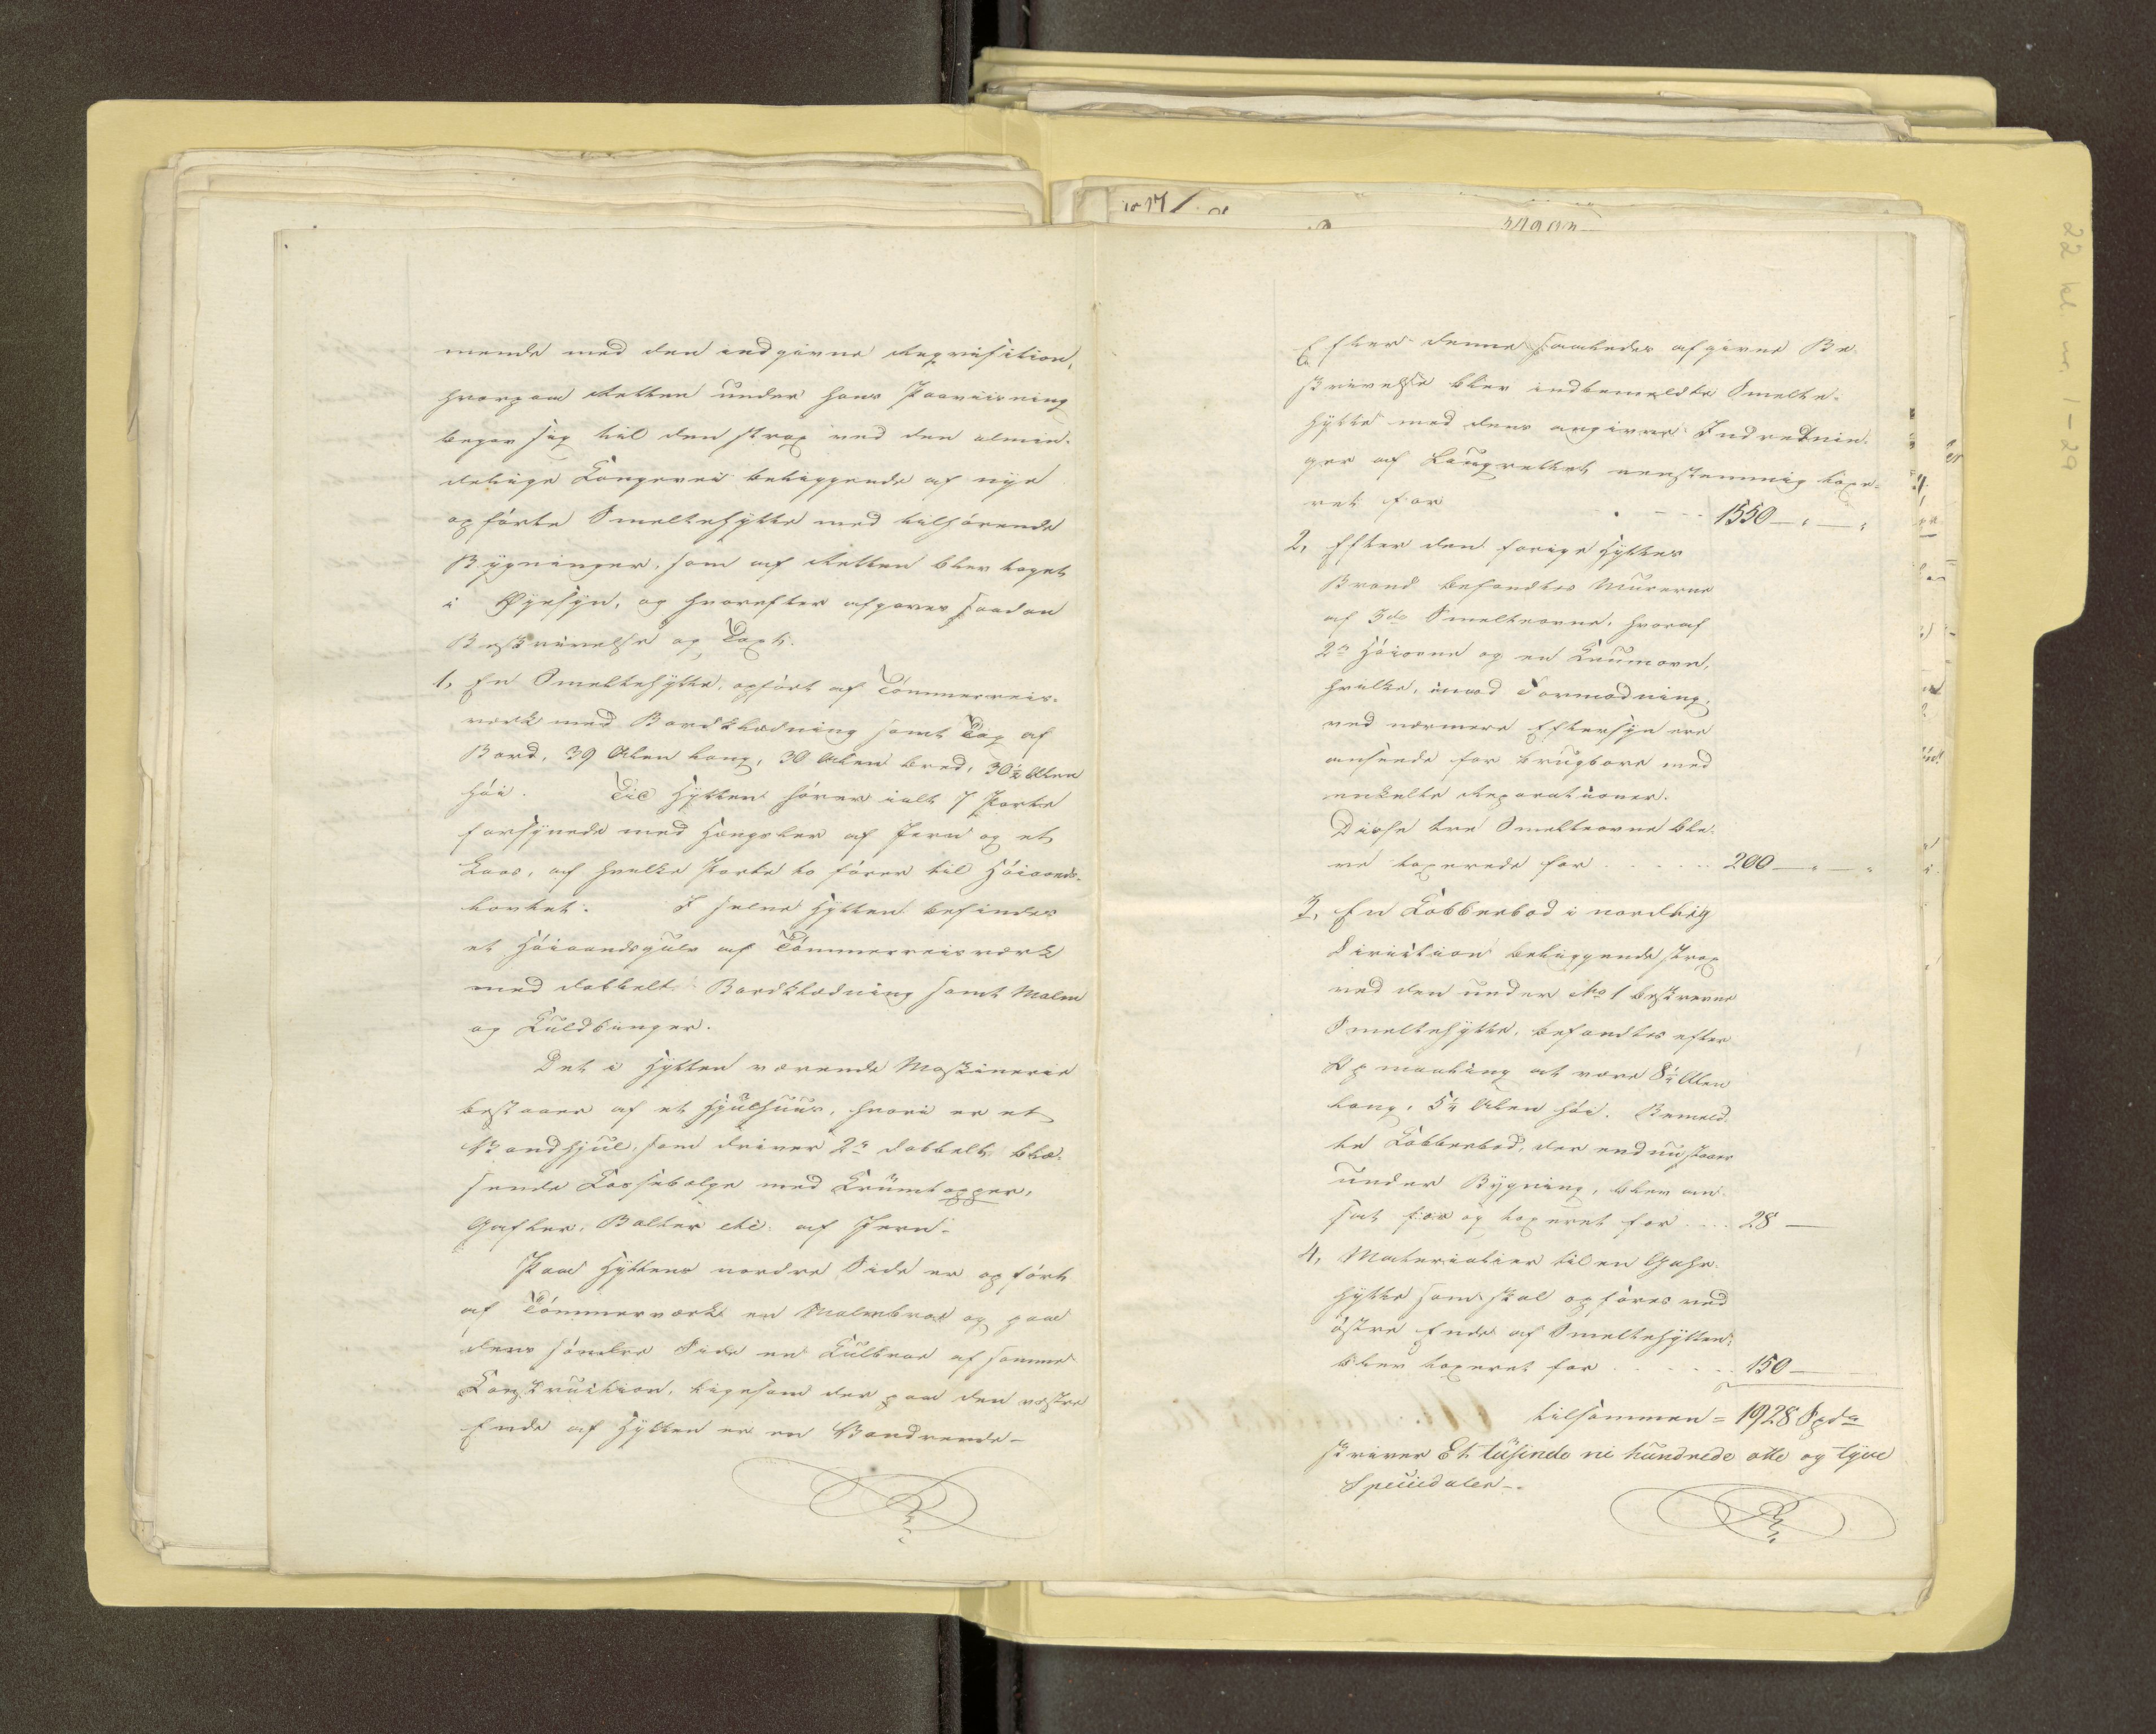 mende med den indgivne Reqvisition,
hvorpaa Retten under hans Paaviisning
begav sig til den strax ved den almin-
delige Kongevei beliggende af nye
opförte Smeltehytte med tilhörende
Bygninger, som af Retten blev taget
i Øyesyn, og hvorefter afgaves saadan
Beskrivelse og Taxt.
1, En Smeltehytte, opfört af Tömmerreis-
værk med Bordklædning samt Tag af
Bord, 39 Alen lang, 30 Alen bred, 30½ Alen
höi. Til Hytten hörer ialt 7 Porte
forsynede med Hængsler af Jern og et
Laas, af hvilke Porte to förer til Höiovnds-
lovtet. I selve Hytten befindes
et Höiovndsgulv af Tömmerreisværk
med dobbelt Bordklædning samt Malm
og Kuldbinger.
Det i Hytten værende Maskinerie
bestaaer af et Hjulhuus, hvori er et
Vandhjul, som driver 2de dobbelt blæ-
sende Kassebælge med Krumtapper,
Gafler, Bolter etc. af Jern.
Paa Hyttens nordre Side er opfört
af Tömmerværk en Malmbroe og paa
dens söndre Side en Kulbroe af samme
Konstruction, ligesom der paa den vestre
Ende af Hytten er en Vandrende –
Efter denne saaledes afgivne Be-
skrivelse blev indbemeldte Smelte-
hytte med dens angivne Indretnin-
ger af Laugrettet eenstemmig taxe-
ret for 1550 – " – "
2, Efter den forige Hyttes
Brand befandtes Murerne
af 3de Smelteovne, hvoraf
2de Höiovne og en Krumovn,
hvilke, imod Formodning,
ved nærmere Eftersyn ere
anseede for brugbare med
enkelte Reparationer.
Disse tre Smelteovne ble-
ve taxerede for 200 – " – "
3, En Kobberbod i nordlig
Direction beliggende strax
ved den under No 1 beskrevne
Smeltehytte, befandtes efter
Opmaaling at være 8½ Alen
lang, 5¼ Alen höi. Bemeld-
te Kobberbod, der endnu staaer
under Bygning, blev an-
sat for og taxeret for 28 –
4, Materialier til en Gahr-
hytte som skal opföres ved
östre Ende af Smeltehytten,
blev taxeret for 150 –
tilsammen = 1928 Spdr
skriver Et tusinde ni hundrede otte og tyve
Speciedaler –.
22 kl nr 1-29